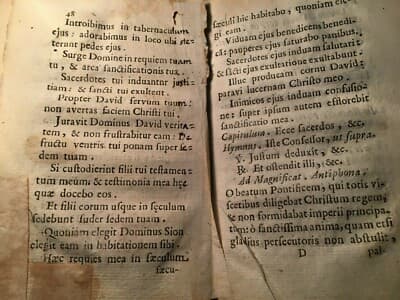 48
Introibimus in tabernaculum
ejus: adorabimus in loco ubi ste-
terunt pedes ejus.
Surge Domine in requiem tuam
tu, & arca sanctificationis tuæ.
Sacerdotes tui induantur justi-
tiam: & sancti tui exultent.
Propter David servum tuum:
non avertas faciem Christi tui.
Juravit Dominus David verita-
tem, & non frustrabitur eam: De
fructu ventris tui ponam super se
dem tuam.
Si custodierint filii tui testamen-
tum meum & testimonia mea hæc
quæ docebo eos.
Et filii eorum usque in sęculum
sedebunt super sedem tuam.
Quoniam elegit Dominus Sion
elegit eam in habitationem sibi.
Hæc requies mea in sæculum
sæcu-
sæculi hic habitabo, quoniam ele-
gi eam.
Viduam ejus benedicens benedi-
cã: pauperes ejus saturabo panibus.
Sacerdotes ejus induam salutari
& sãcti ejus exultatione exultabunt.
Illuc producam cornu David:
paravi lucernam Christo meo.
Inimicos ejus induam confusio-
ne: super ipsum autem efflorebit
sanctificatio mea.
Capitulum. Ecce sacerdos, &c.
Hymnus. Iste Confessor, ut supra.
℣. Justum deduxit, &c.
℟. Et ostendit illi, &c.
Ad Magnificat. Antiphona.
O beatum Pontificem, qui totis vi-
sceribus diligebat Christum regem,
& non formidabat imperii principa-
tum: o sanctissima anima, quam etsi
gladius persecutoris non abstulit,
D
pal-